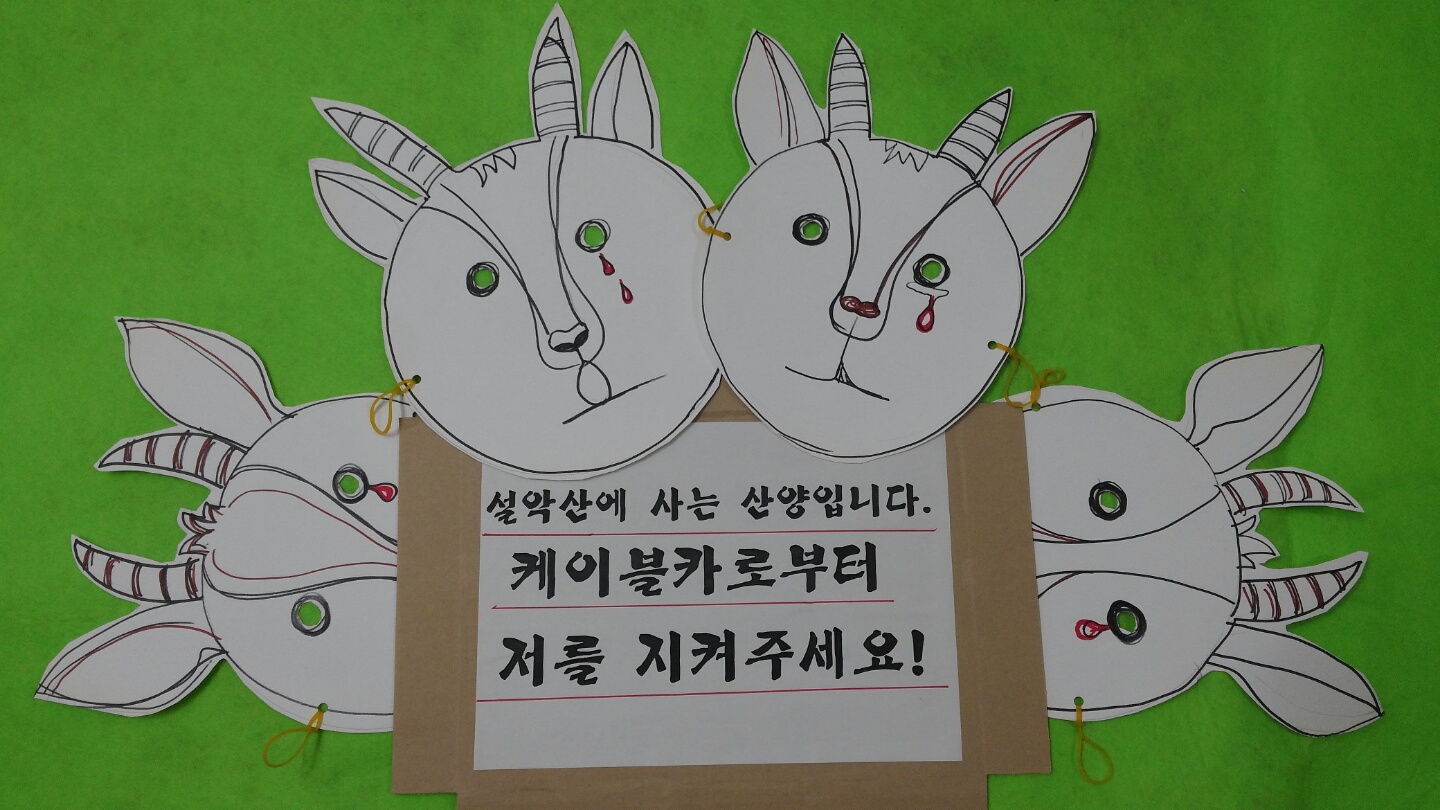 설악산에 사는 산양입니다.
케이블카로부터
저를 지켜주세요!